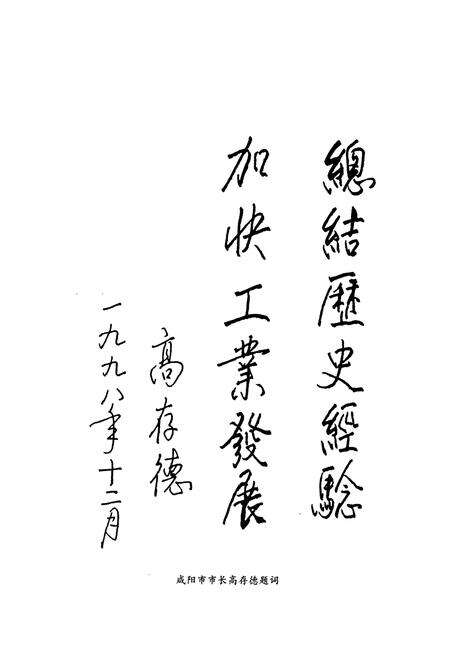 總結歷史經驗
加快工業發展
高存德
一九九八年十二月
咸阳市市长高存德题词